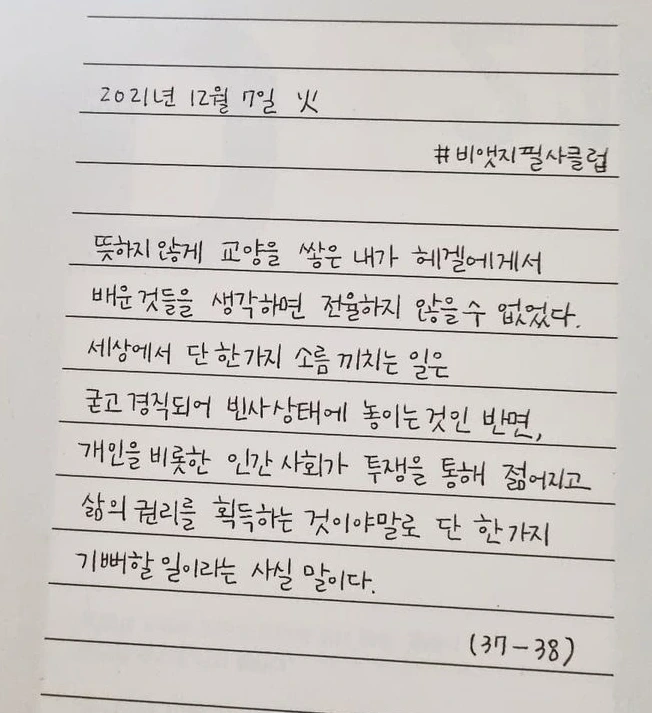 2021년 12월 7일 火
#비앳지필사클럽
뜻하지 않게 교양을 쌓은 내가 헤겔에게서
배운 것들을 생각하면 전율하지 않을 수 없었다.
세상에서 단 한가지 소름 끼치는 일은
굳고 경직되어 빈사상태에 놓이는 것인 반면,
개인을 비롯한 인간 사회가 투쟁을 통해 젊어지고
삶의 권리를 획득하는 것이야말로 단 한가지
기뻐할 일이라는 사실 말이다.
(37-38)